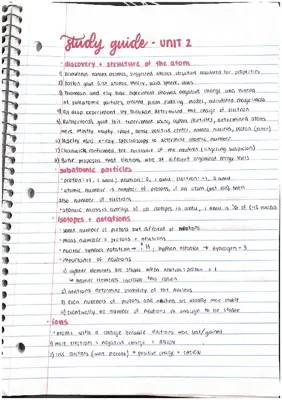 Study guide - UNIT 2
discovery + structure of the atom
1) Democritus named atomos, suggested atomos structure accounted for properties
2) Dalton gave first atomic theory, solid sphere, ideas
3) Thomson and ray tube experiment showed negative charge and existence
of subatomic particles, created plum pudding model, calculated charge:mass
4) Oil drop experiment by Millikan determined the charge of electron
5) Rutherford's gold foil experiment using alpha particles, determined atoms
were mostly empty space, dense positive center, named nucleus, proton
6) Moseley used x-ray spectroscopy to determine atomic number
7) Chadwick confirmed the existence of the neutron
8) Bohr proposed that electrons were at different organized energy levels
subatomic particles
proton: +1, 1 amu; neutron: 0, 1 amu; electron: -1, 0 amu
atomic number = number of protons, if an atom (not ion), then
also number of electrons
isotopes + notations
same number of protons but different # neutrons
mass number = protons + neutrons
nuclear symbol notation → H; hyphen notation → hydrogen - 3
importance of neutrons
1) lighter elements are stable when neutron:proton = 1
→ heavier elements increase this ratio
2) neutrons determine stability of the nucleus
3) even numbers of protons and neutrons are usually more stable
4) eventually no number of neutrons is enough to be stable
ions
atoms with a charge because electrons was lost/gained
1) more electrons = negative charge = anion
2) less electrons (more protons) = positive charge = cation